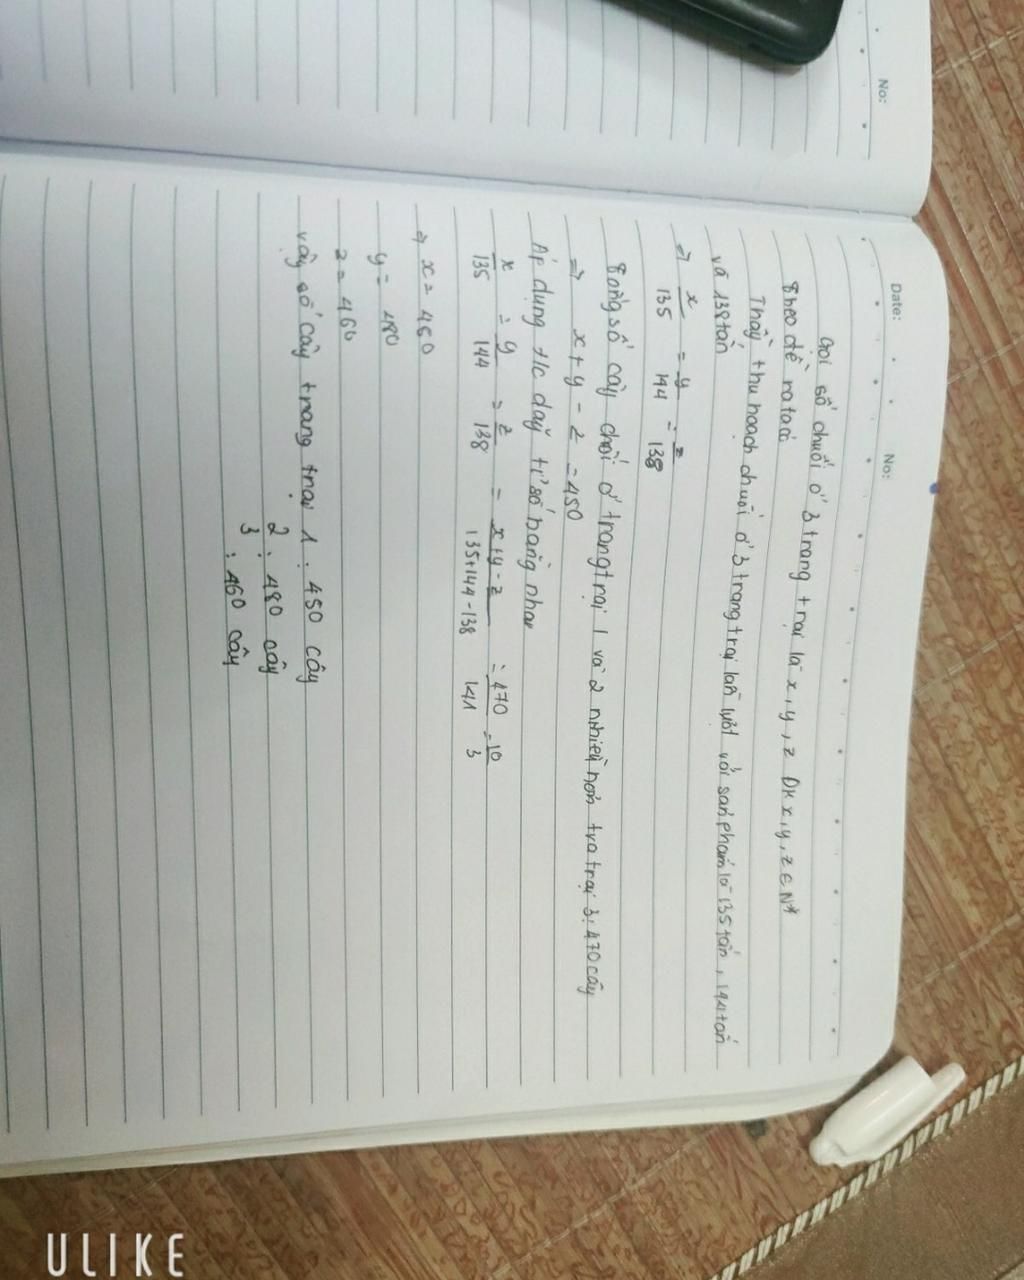 No:
Date: No:
Gọi số chuối ở 3 trang trại là x, y, z ĐK x, y, z ∈ N*
Theo đề ra ta có
Thầy thu hoạch chuối ở 3 trang trại lần lượt với sản phẩm là 135 tấn, 144 tấn
và 138 tấn
=> x/135 = y/144 = z/138
Tổng số cây chối ở trang trại 1 và 2 nhiều hơn tra trại 3: 470 cây
=> x + y - z = 450
Áp dụng t/c dãy tỉ số bằng nhau
x/135 = y/144 = z/138 = x+y-z/135+144-138 = 470/141 = 10/3
=> x = 450
y = 480
z = 460
Vậy số cây trang trại 1: 450 cây
2: 480 cây
3: 460 cây
ULIKE